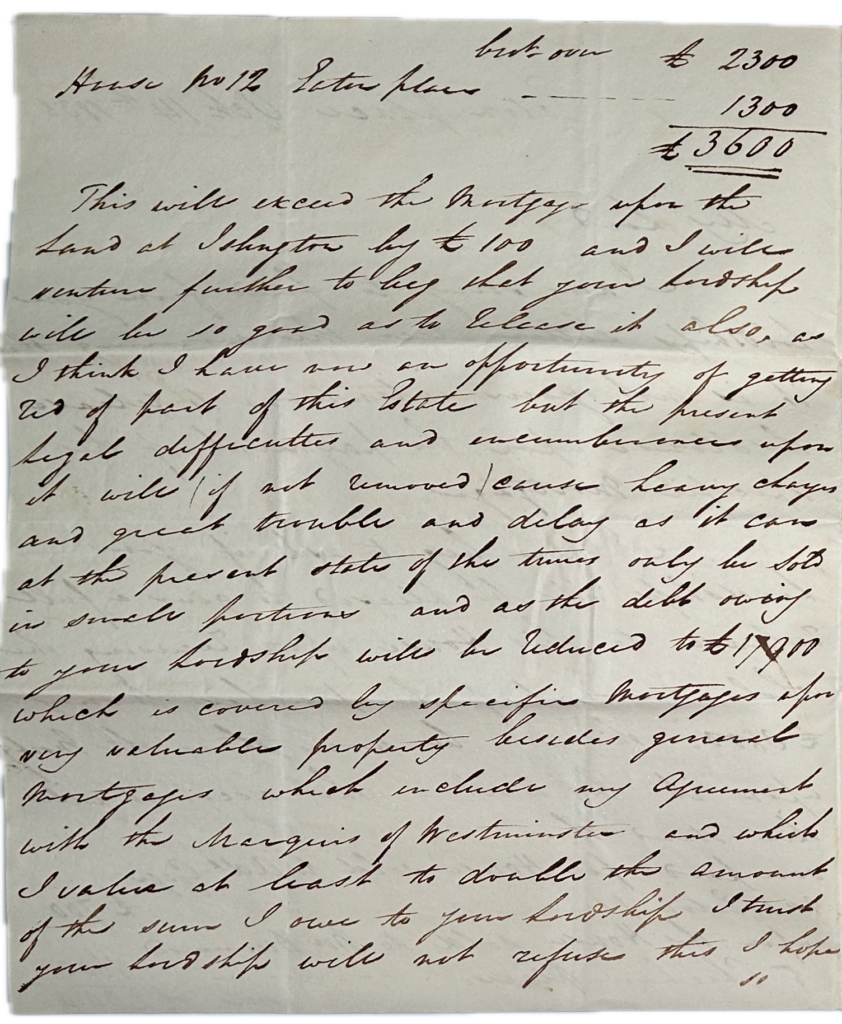 brot over £ 2300
House No 12 Eaton place - - - - 1300
£3600
This will exceed the Mortgage upon the
Land at Islington by £100 and I will
venture further to beg that your Lordship
will be so good as to release it also, as
I think I have now an opportunity of getting
rid of part of this Estate but the present
legal difficulties and encumberances upon
it will (if not removed) cause heavy charges
and great trouble and delay as it can
at the present state of the times only be sold
in small portions and as the debt owing
to your Lordship will be reduced to
which is covered by specific Mortgages upon
very valuable property besides general
Mortgages which include my Agreement
with the Marquis of Westminster and which
I value at least to double the amount
of the sum I owe to your Lordship I trust
your Lordship will not refuse this I hope